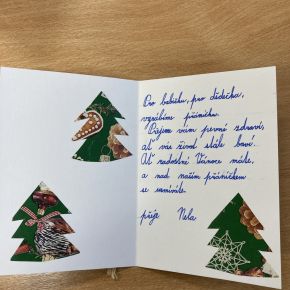 Pro babičku, pro dědečka,
vyrábíme přáníčka.
Přejeme vám pevné zdraví,
ať vás život stále baví.
Ať radostné Vánoce máte,
a nad naším přáníčkem
se usmíváte.
přeje Nela